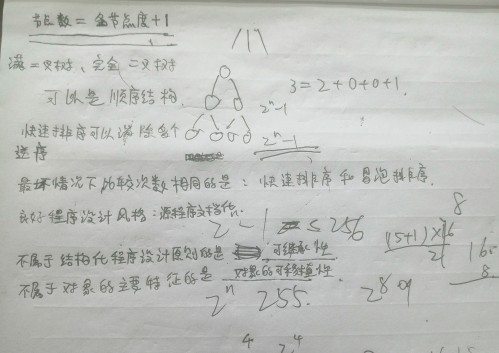 节点数 = 全节点度+1
满二叉树、完全二叉树
可以是顺序结构.
3=2+0+0+1.
2ⁿ-1
快速排序可以消除多个
逆序
2ⁿ-1
最坏情况下比较次数相同的是：快速排序和冒泡排序.
良好程序设计风格：源程序文档化.
2 - 1 ≤ 256
8
不属于结构化程序设计原则的是 可继承性
不属于对象的主要特征的是 对象的可移植性
2ⁿ 255.